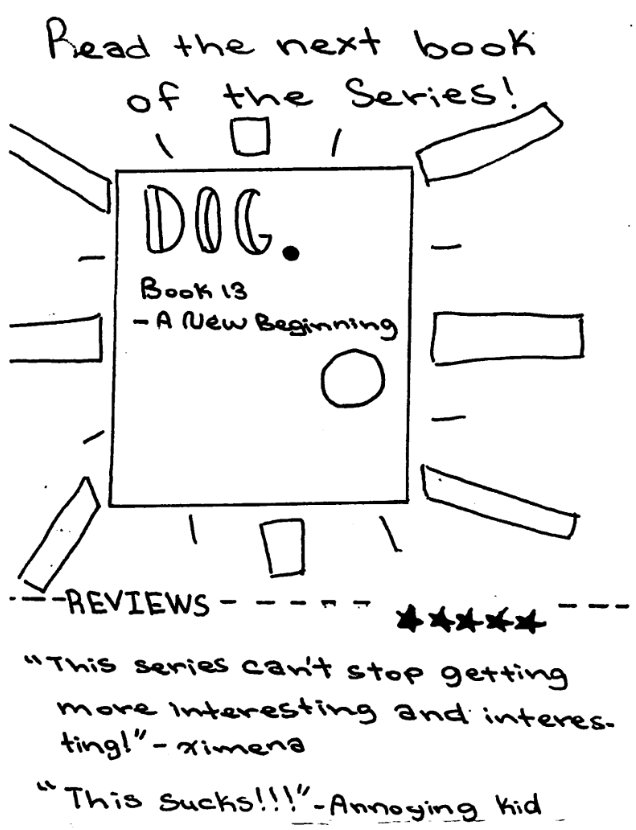 Read the next book
of the Series!
DOG.
Book 13
- A New Beginning
---REVIEWS - - - - - - ★★★★★ ---
"This series can't stop getting
more interesting and interes-
ting!" - ximena
"This sucks!!!" - Annoying kid